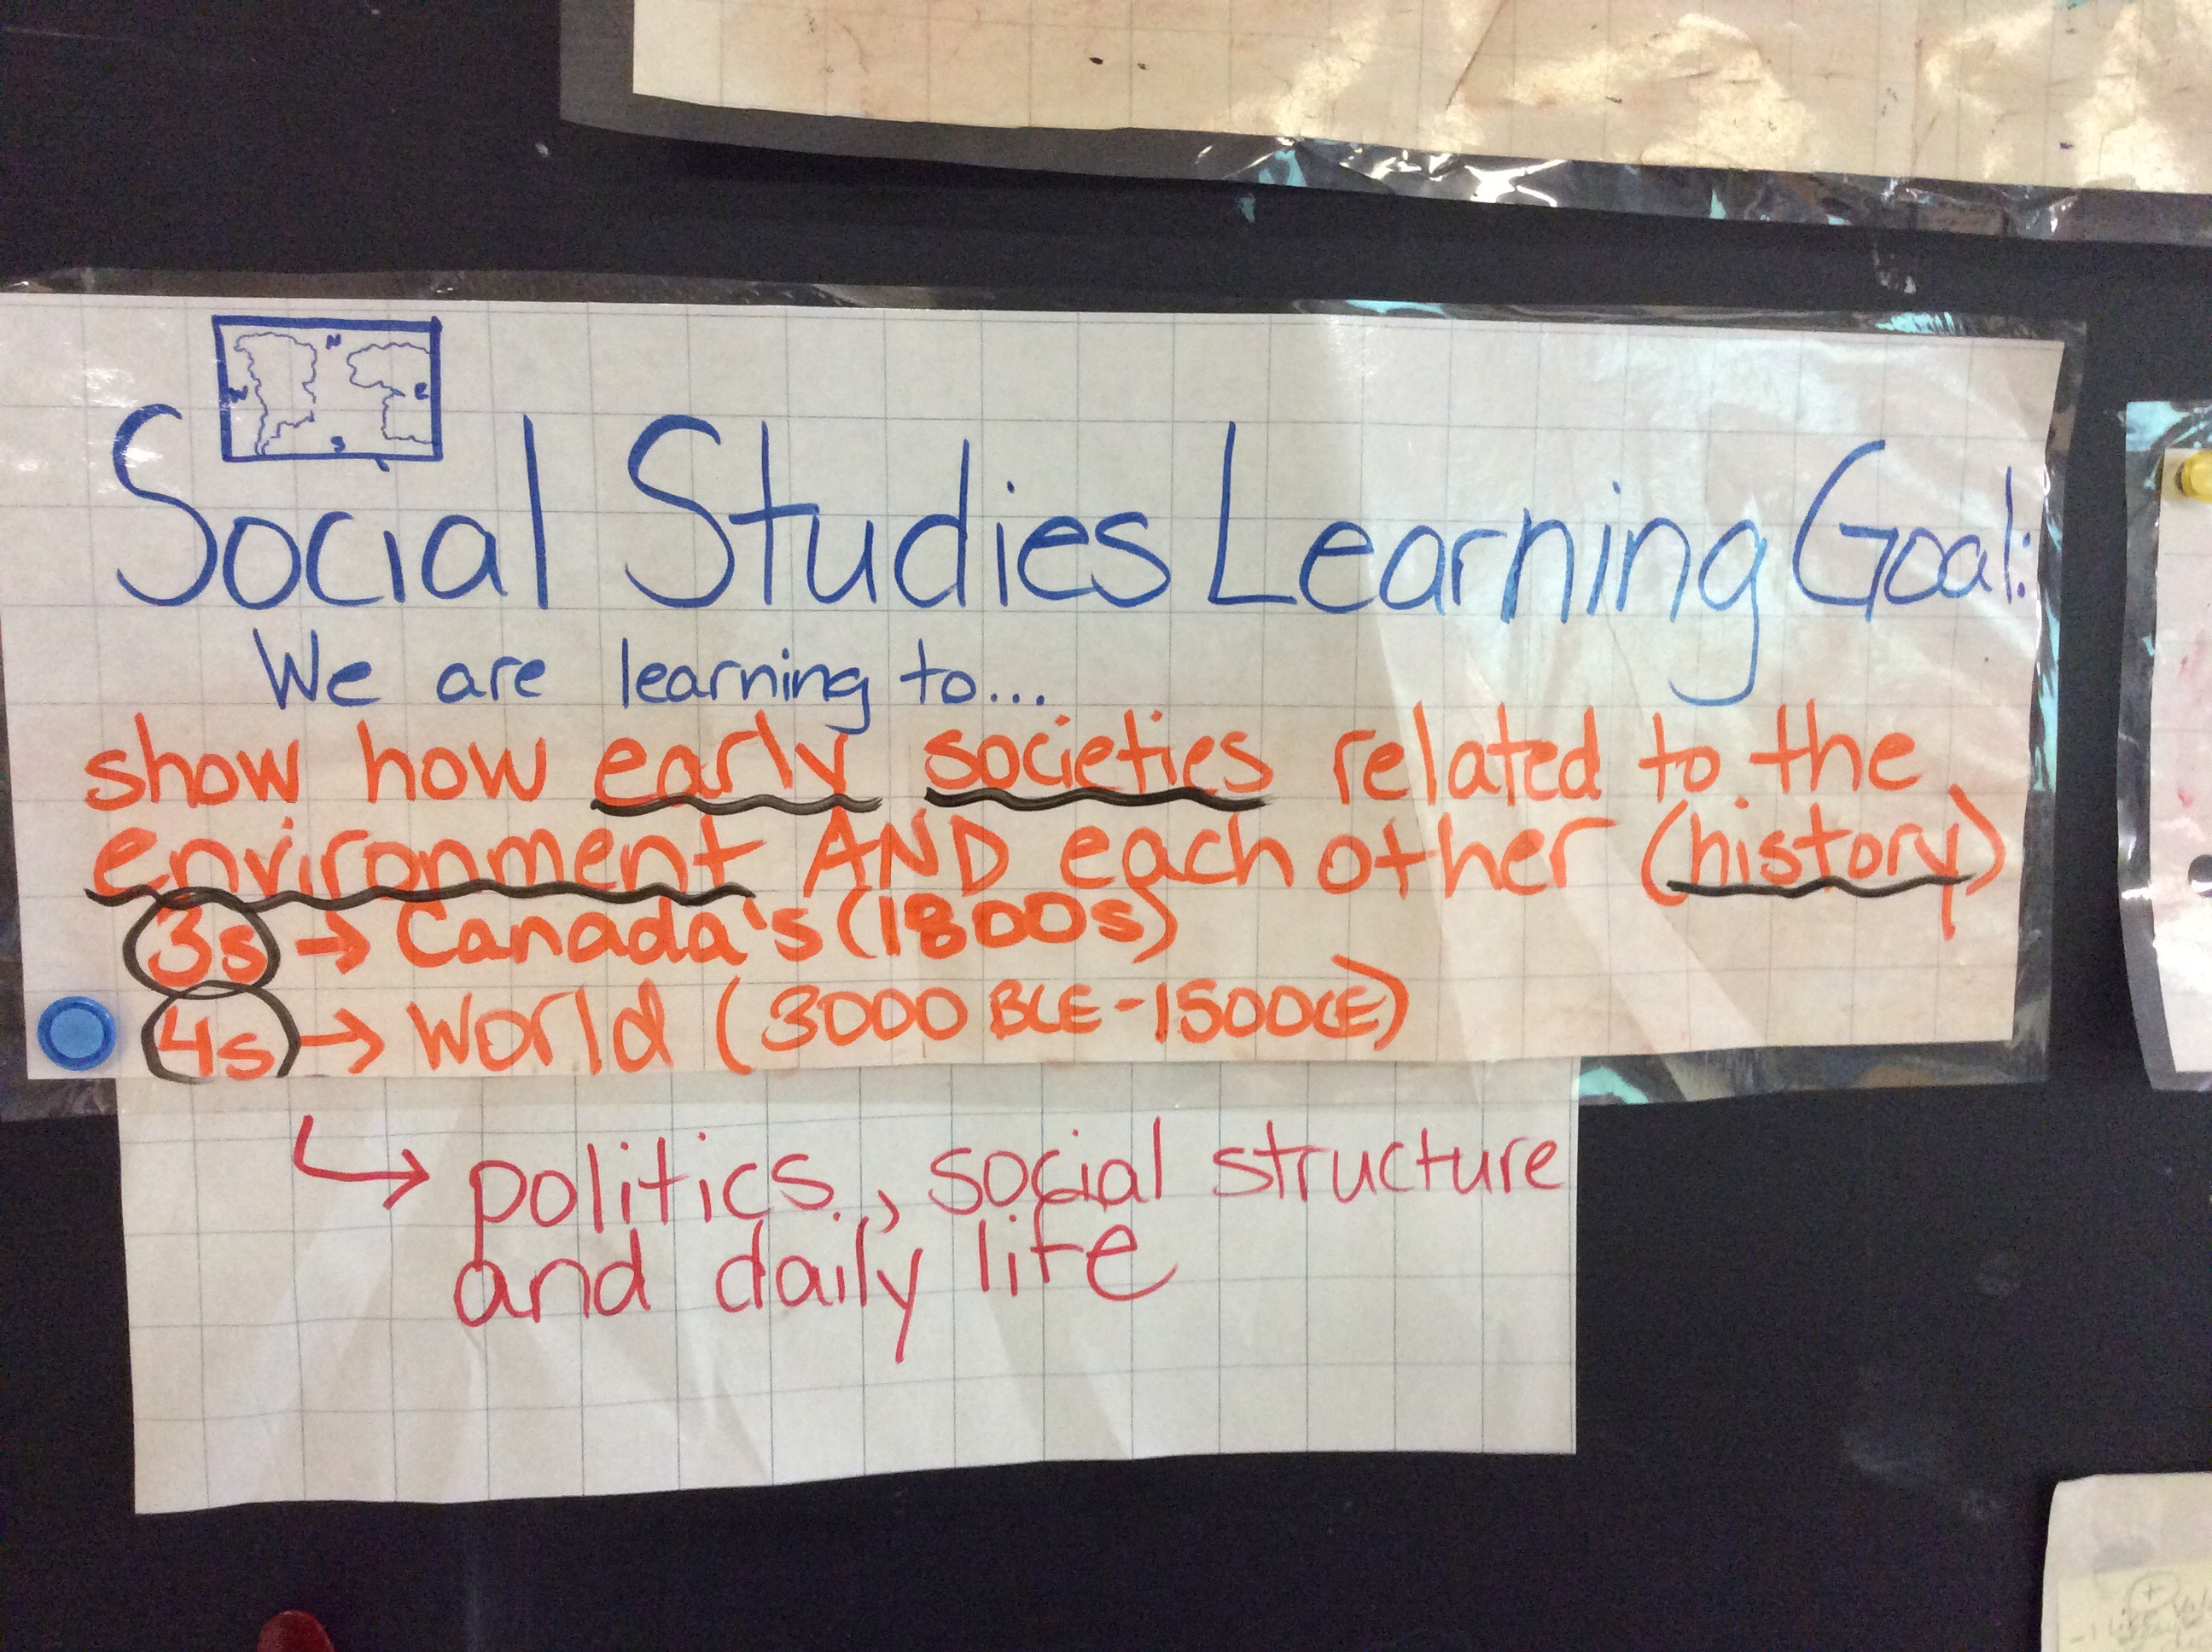 N
W E
S
Social Studies Learning Goal:
We are learning to...
show how early societies related to the
environment AND each other (history)
3s → Canada's (1800s)
4s → World (3000 BCE - 1500CE)
↳ politics, social structure
and daily life